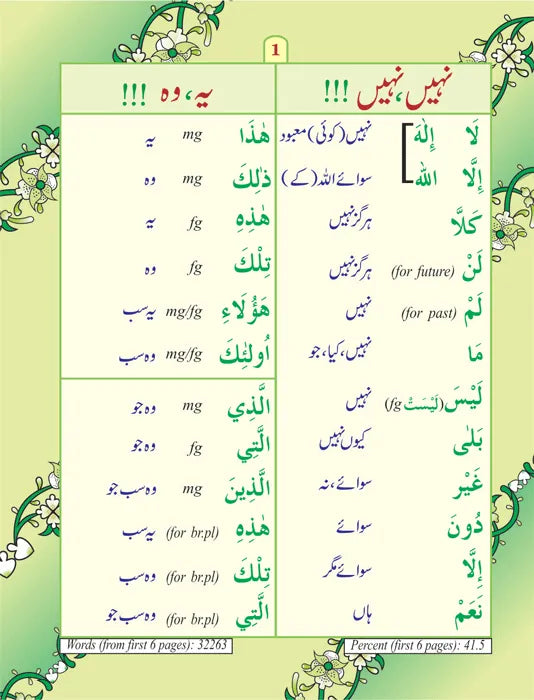 1
نہیں،نہیں !!!
لَا إِلٰهَ نہیں(کوئی)معبود
إِلَّا اللّٰه سوائے اللہ(کے)
كَلَّا ہرگز نہیں
لَنْ (for future) ہرگز نہیں
لَمْ (for past) نہیں
مَا نہیں،کیا،جو
لَيْسَ(لَيْسَتْ fg) نہیں
بَلٰى کیوں نہیں
غَيْر سوائے،نہ
دُونَ سوائے
إِلَّا سوائے مگر
نَعَمْ ہاں
یہ،وہ !!!
هٰذَا mg یہ
ذٰلِكَ mg وہ
هٰذِهِ fg یہ
تِلْكَ fg وہ
هَؤُلَاءِ mg/fg یہ سب
أُولٰئِكَ mg/fg وہ سب
الَّذِي mg وہ جو
الَّتِي fg وہ جو
الَّذِينَ mg وہ سب جو
هٰذِهِ (for br.pl) یہ سب
تِلْكَ (for br.pl) وہ سب
الَّتِي (for br.pl) وہ سب جو
Words (from first 6 pages): 32263
Percent (first 6 pages): 41.5